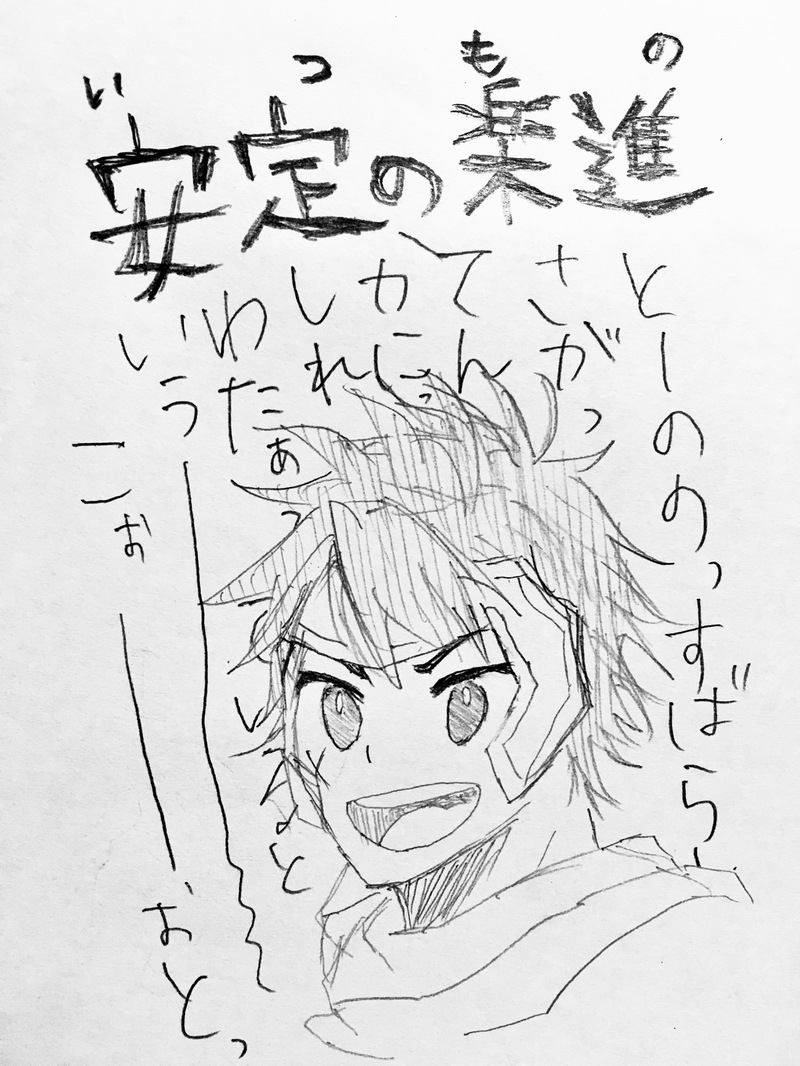 いつもの
安定の楽進
とーののっすばらし
さがっ
てん
かにっ
しれ
わたぁっ
いると
いう
こぉーーおとっ